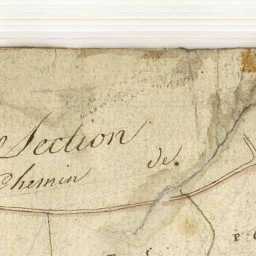 Section
Chemin de.